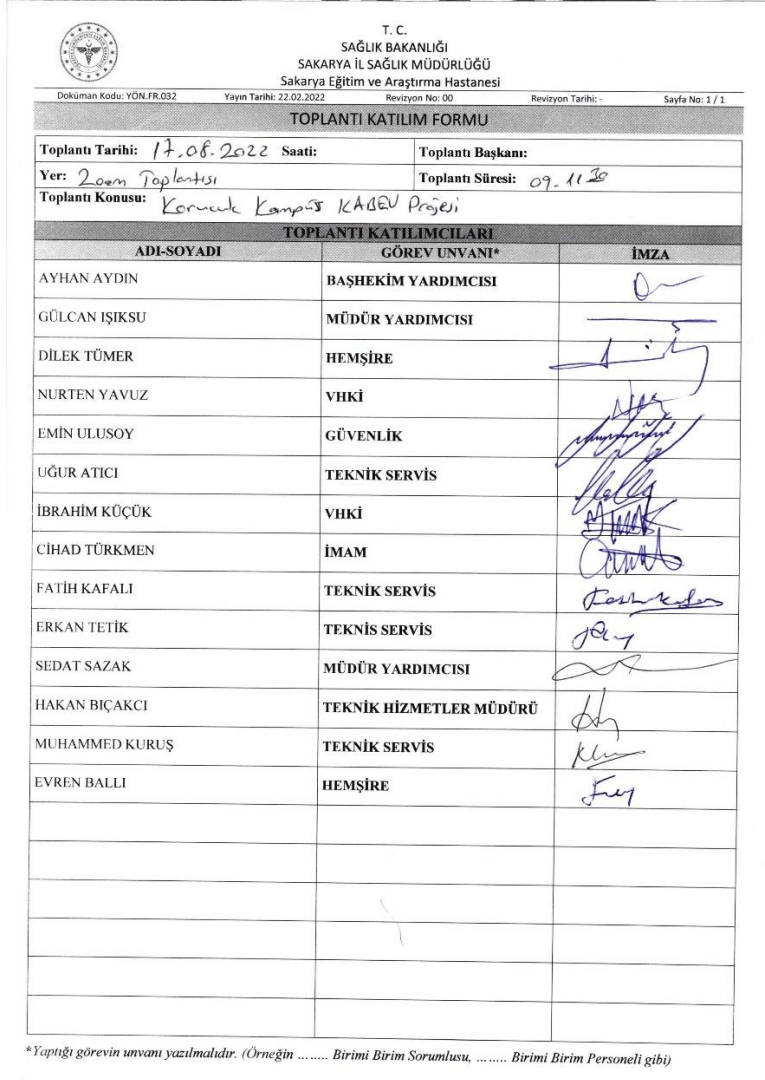 T. C.
SAĞLIK BAKANLIĞI
SAKARYA İL SAĞLIK MÜDÜRLÜĞÜ
Sakarya Eğitim ve Araştırma Hastanesi
Doküman Kodu: YÖN.FR.032 Yayın Tarihi: 22.02.2022 Revizyon No: 00 Revizyon Tarihi: - Sayfa No: 1 / 1
TOPLANTI KATILIM FORMU
Toplantı Tarihi: 17.08.2022 Saati: Toplantı Başkanı:
Yer: Zoom Toplantısı Toplantı Süresi: 09.11 30
Toplantı Konusu: Korucuk Kampüs KABEV Projesi
TOPLANTI KATILIMCILARI
ADI-SOYADI GÖREV UNVANI* İMZA
AYHAN AYDIN BAŞHEKİM YARDIMCISI
GÜLCAN IŞIKSU MÜDÜR YARDIMCISI
DİLEK TÜMER HEMŞİRE
NURTEN YAVUZ VHKİ
EMİN ULUSOY GÜVENLİK
UĞUR ATICI TEKNİK SERVİS
İBRAHİM KÜÇÜK VHKİ
CİHAD TÜRKMEN İMAM
FATİH KAFALI TEKNİK SERVİS
ERKAN TETİK TEKNİS SERVİS
SEDAT SAZAK MÜDÜR YARDIMCISI
HAKAN BIÇAKCI TEKNİK HİZMETLER MÜDÜRÜ
MUHAMMED KURUŞ TEKNİK SERVİS
EVREN BALLI HEMŞİRE
*Yaptığı görevin unvanı yazılmalıdır. (Örneğin ........ Birimi Birim Sorumlusu, ........ Birimi Birim Personeli gibi)